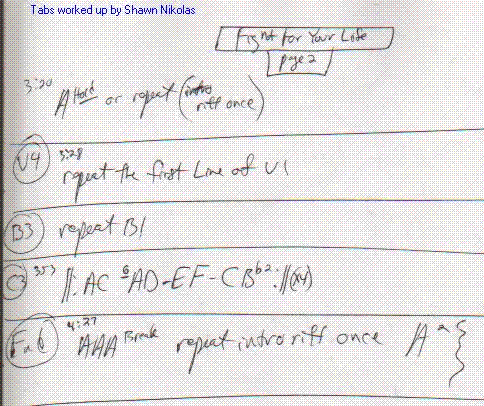 Tabs worked up by Shawn Nikolas
Fight for Your Life
page 2
3:20 A Hold or repeat (intro riff once)
V4 3:28 repeat the first Line of V1
B3 repeat B1
C3 353 ||: AC AD-EF-CB b2 :|| (x4)
End 4:27 AAA Break repeat intro riff once A